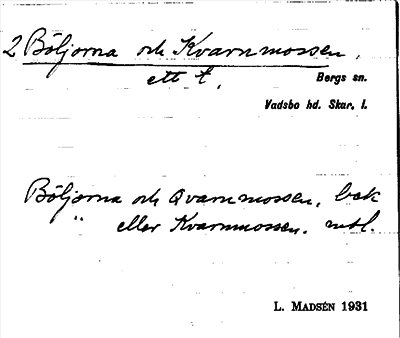 2 Böljorna och Kvarnmossen,
ett t.
Bergs sn.
Vadsbo hd. Skar. l.
Böljorna och Qvarnmossen, bek
" eller Kvarnmossen. mtl.
L. MADSÉN 1931